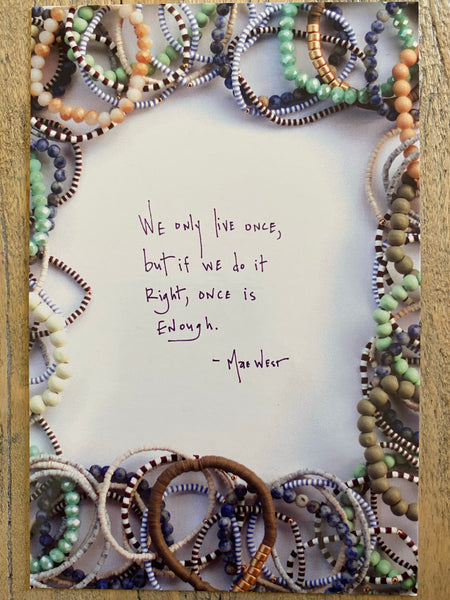 We only live once,
but if we do it
Right, once is
Enough.
- Mae West